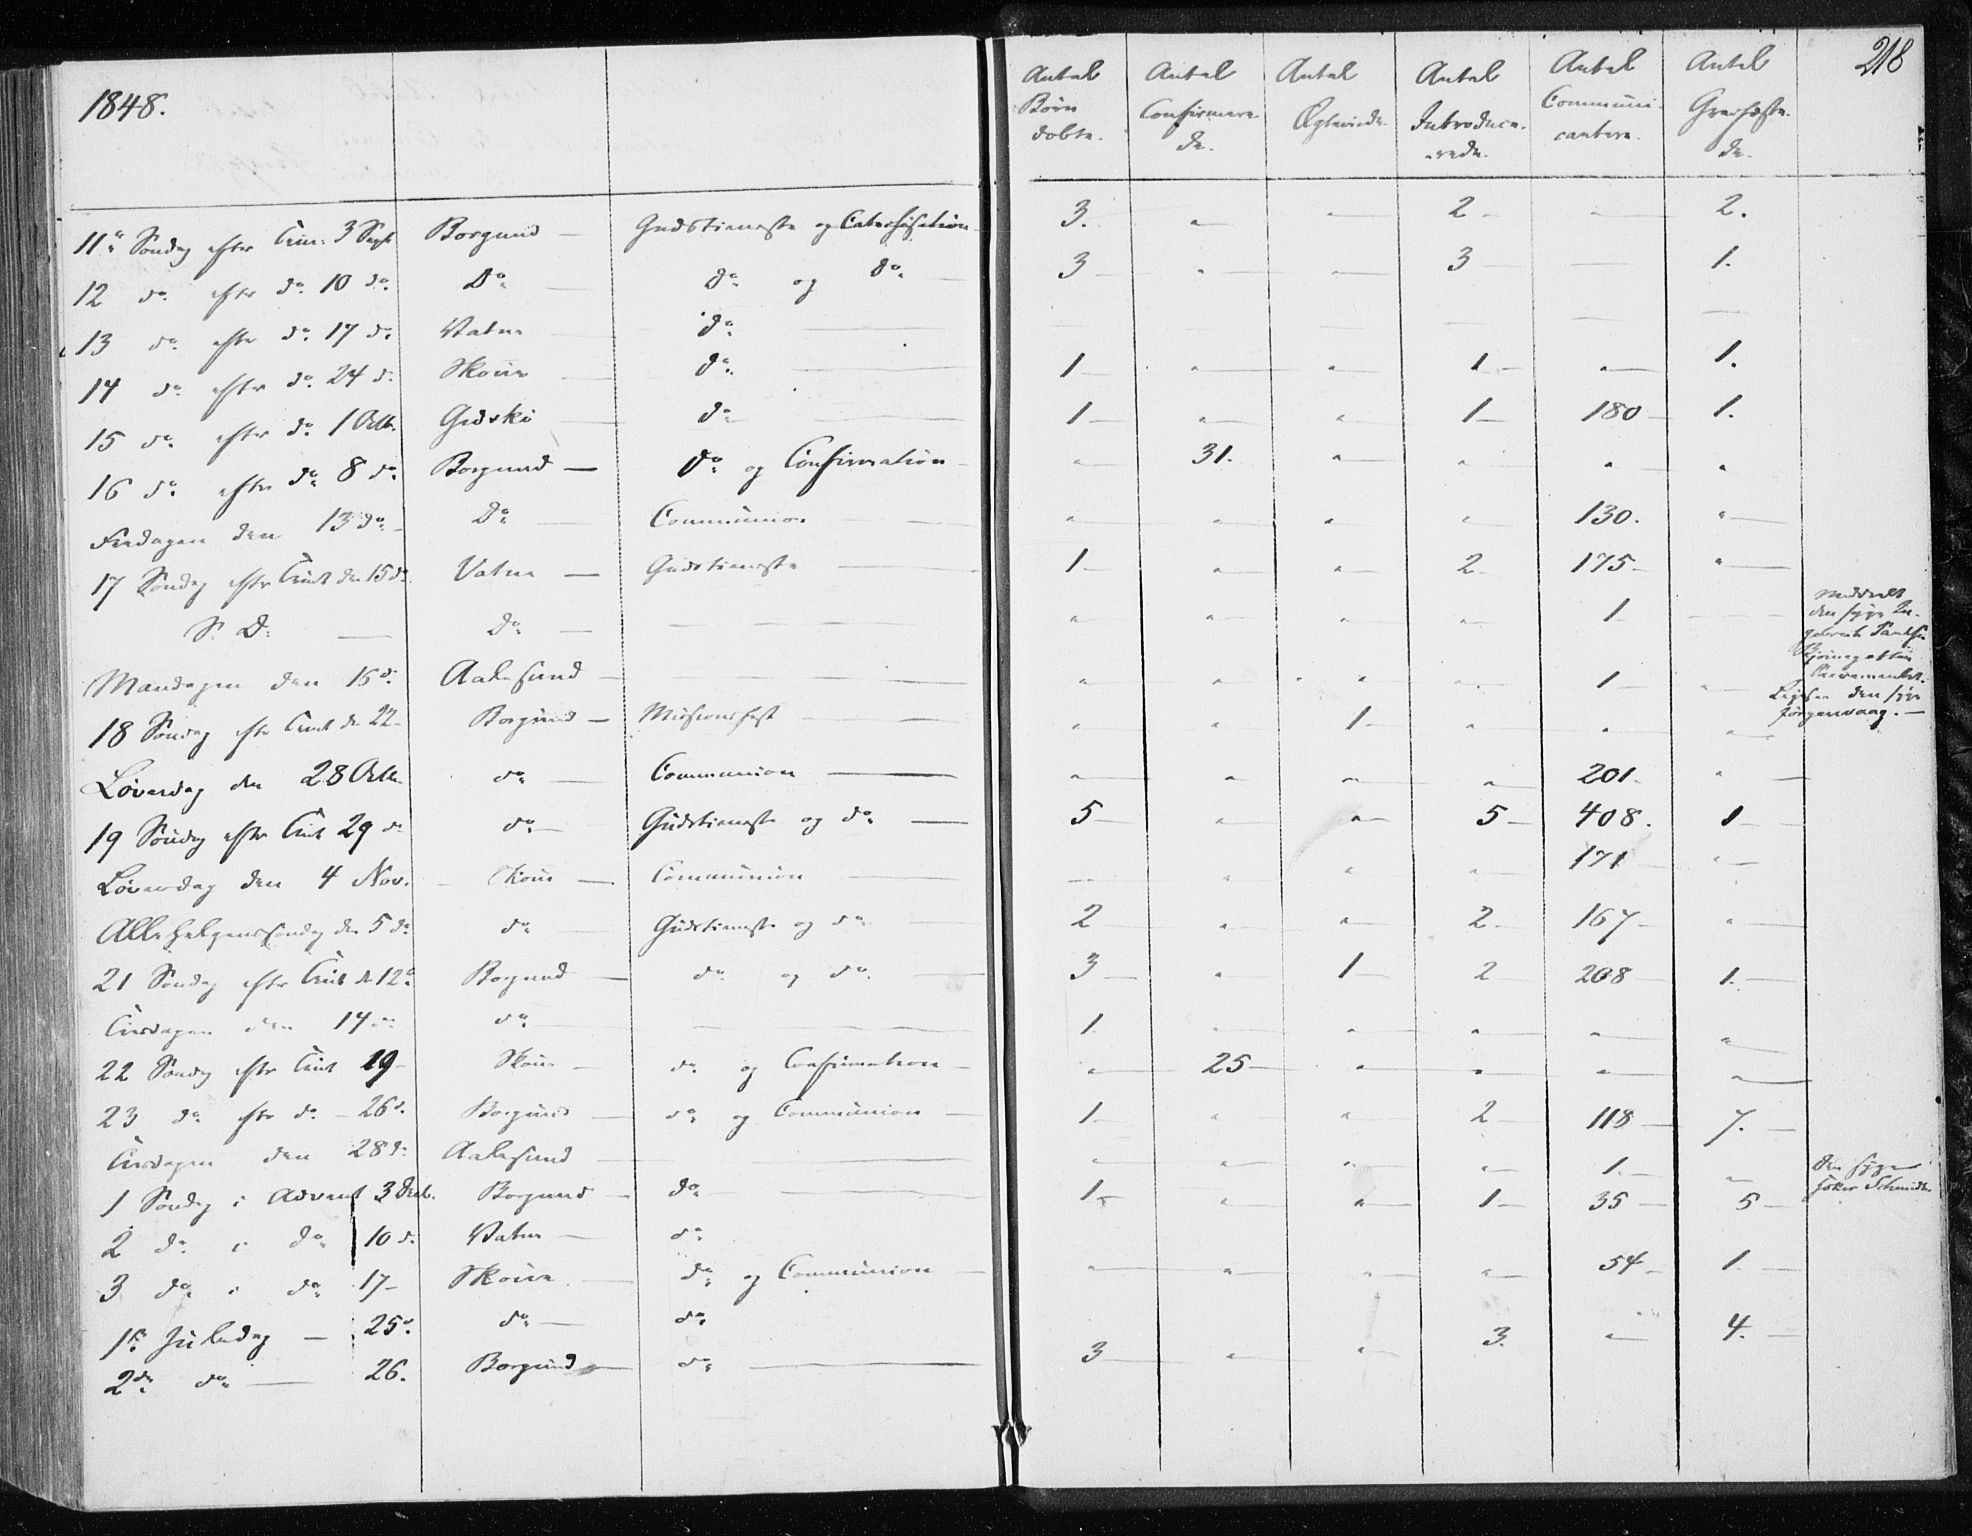 1848.
Antal Børn døbte.
Antal Confirmere-de.
Antal Ægteviede
Antal Introduce-rede.
Antal Communi-cantere.
Antal Gravfæste-de.
218
11te Søndag efter Trin: 3 Sept Borgund — Gudstieneste og Catechisation — 3. " " 2 — " 2.
12 do efter do 10 do Do — do og do — 3 — " " 3 — 1.
13 do efter do 17 do Vatne — do —
14 do efter do 24 do Skoue — do — 1 — " " 1 — " 1.
15 do efter do 1 Octb. Gidske — do — 1 — " " 1 — 180 — 1.
16 do efter do 8 do Borgund — Do og Confirmation — " 31. " " " "
Fredagen den 13 do — Do — Communion — " " " " 130. "
17 Søndag efter Trinit den 15 do Vatne — Gudstieneste — 1 — " " 2 — 175 — "
S. D. — Do — " " " " 1 —
Meddeelt
den syge
Sacramentet.
Mandagen den 16 do Aalesund — " " " " 1 — "
Ligesaa den syge
Jørgenvaag. —
18 Søndag efter Trinit den 22 — Borgund — Missionsfest — " " 1 — " " "
Løverdag den 28 Octb. do — Communion — " " " " 201 — "
19 Søndag efter Trinit 29 do do — Gudstieneste og do — 5 — " " 5 — 408. 1 —
Løverdag den 4 Nov. — Skoue — Communion — " " " 171 — "
Alle helgenssøndag den 5 do do Gudstieneste og do — 2 " " 2 — 167 — "
21 Søndag efter Trinit den 12 do Borgund — do og do — 3 — " 1 — 2 208 — 1. —
Tirsdagen den 14 do do — 1 " " " " "
22 Søndag efter Trinit 19 — Skoue — do og Confirmation — " 25 — " " " "
23 do efter do — 26 do Borgund — do og Communion — 1 — " " 2 — 118 — 7. —
Tirsdagen den 28 do Aalesund — " " " " 1. — "
den syge
Schmidt
1 Søndag i Advent 3 Decb. Borgund — do — 1 — " " 1 — 35 — 5 —
2 do i do 10 do Vatne — do
3 do i do 17 — Skoue — do og Communion — " " " " 54 — 1. —
1ste Juledag — 25 do do — do 
2den do — 26. Borgund — do — 3 — " " 3. " 4. —